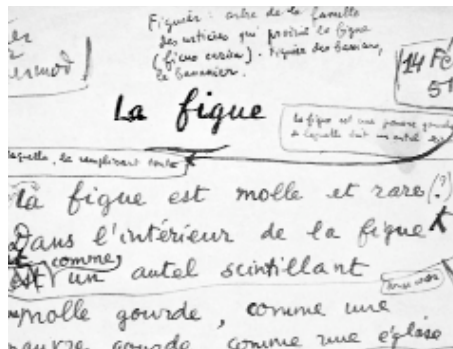 Figuier : arbre de la famille
des urticées qui produit la figue
(ficus carica). Figuier des
le bananier.
14 Fé
51
La figue
la figue est une pauvre gourde
laquelle, la remplissant toute
La figue est molle et rare (?)
Dans l'intérieur de la figue
est comme
un autel scintillant
molle gourde, comme une
pauvre gourde comme une église